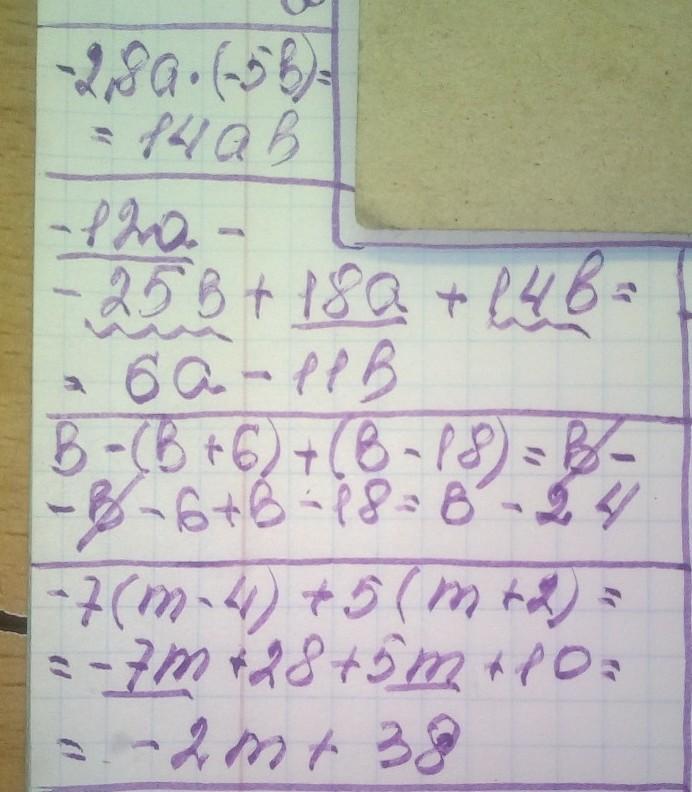 -2,8a·(-5b)=
= 14ab
-12a -
- 25b + 18a + 14b =
= 6a - 11b
b - (b + 6) + (b - 18) = b -
- b - 6 + b - 18 = b - 24
-7(m - 4) + 5(m + 2) =
= -7m + 28 + 5m + 10 =
= -2m + 38